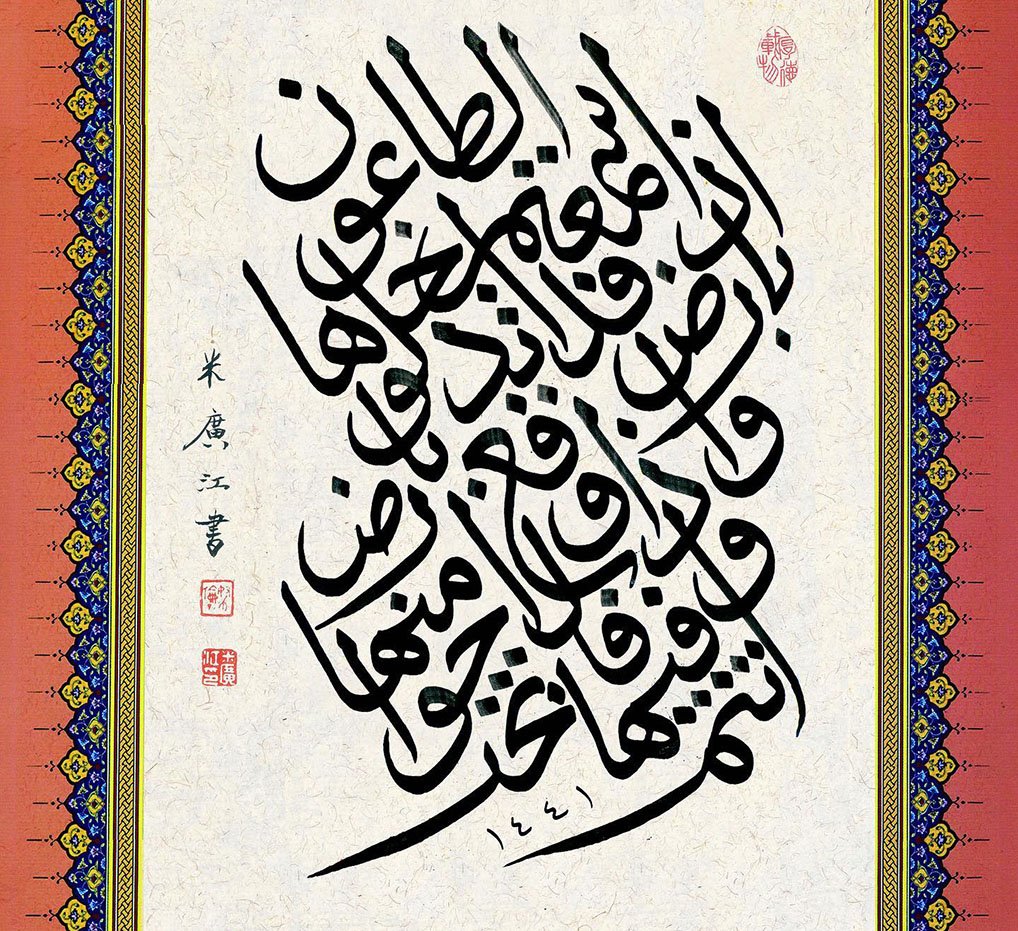 اذا سمعتم الطاعون
بارض فلا تدخلوها
واذا وقع بارض
وانتم فيها فلا تخرجوا منها
١٤٤١
厚德載物
米廣江書
米廣江印